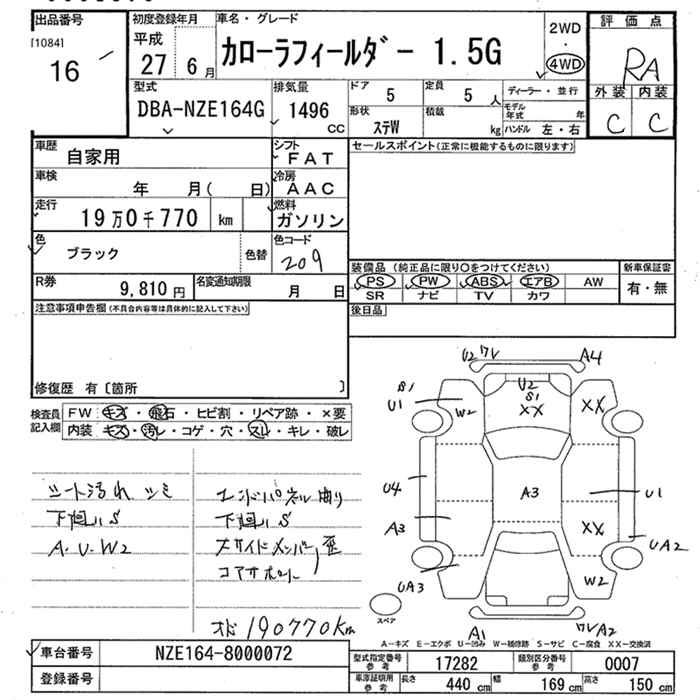 出品番号
[1084]
16
初度登録年月
平成
27 6月
車名・グレード
カローラフィールダー 1.5G
2WD
・
4WD
評価点
RA
外装 内装
C C
型式
DBA-NZE164G
排気量
1496
CC
ドア
5
定員
5 人
ディーラー・並行
形状
ステW
積載
kg
モデル年式 年
ハンドル 左・右
車歴
自家用
シフト
FAT
車検
年 月( 日)
冷房
AAC
走行
19万0千770 km
燃料
ガソリン
色
ブラック
色替
色コード
209
R券
9,810円
名変通知期限
月 日
セールスポイント(正常に機能するものに限ります)
装備品 (純正品に限り〇をつけてください)
新車保証書
PS PW ABS エアB AW
有・無
SR ナビ TV カワ
後日品
注意事項申告欄(不具合内容等は具体的に記入して下さい)
修復歴 有〔箇所 〕
検査員記入欄
FW キズ・飛石・ヒビ割・リペア跡・×要
内装 キズ・汚レ・コゲ・穴・スレ・キレ・破レ
シート汚れ スミ
下廻りS
A.U.W2
エンドパネル曲り
下廻りS
サイドメンバー歪
コアサポート
190770Km
U2 ワレ A4
S1
U1
W2
U2
S1
XX
XX
U4
A3
U1
A3
XX
UA2
UA3
W2
スペア
A1
ワレA2
A-キズ E-エクボ U-凹み W-補修跡 S-サビ C-腐食 XX-交換済
車台番号
NZE164-8000072
登録番号
型式指定番号参考
17282
類別区分番号参考
0007
車庫証明用参考
長さ 440 cm
幅 169 cm
高さ 150 cm